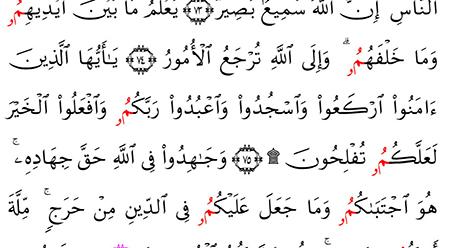 اَلنَّاسِ إِنَّ اَللَّهَ سَمِيعُۢ بَصِيرٞ ٧٣ يَعْلَمُ مَا بَيْنَ أَيْدِيهِمُۥ
وَمَا خَلْفَهُمُۥۗ وَإِلَى اَللَّهِ تُرْجَعُ اُلْأُمُورُ ٧٤ يَٰٓأَيُّهَا اَلَّذِينَ
ءَامَنُواْ اُرْكَعُواْ وَاسْجُدُواْ وَاعْبُدُواْ رَبَّكُمُۥ وَافْعَلُواْ اُلْخَيْرَ
لَعَلَّكُمُۥ تُفْلِحُونَ ۩ ٧٥ وَجَٰهِدُواْ فِي اِللَّهِ حَقَّ جِهَادِهِۦۚ
هُوَ اَجْتَبَىٰكُمُۥ وَمَا جَعَلَ عَلَيْكُمُۥ فِي اِلدِّينِ مِنْ حَرَجٖۚ مِّلَّةَ